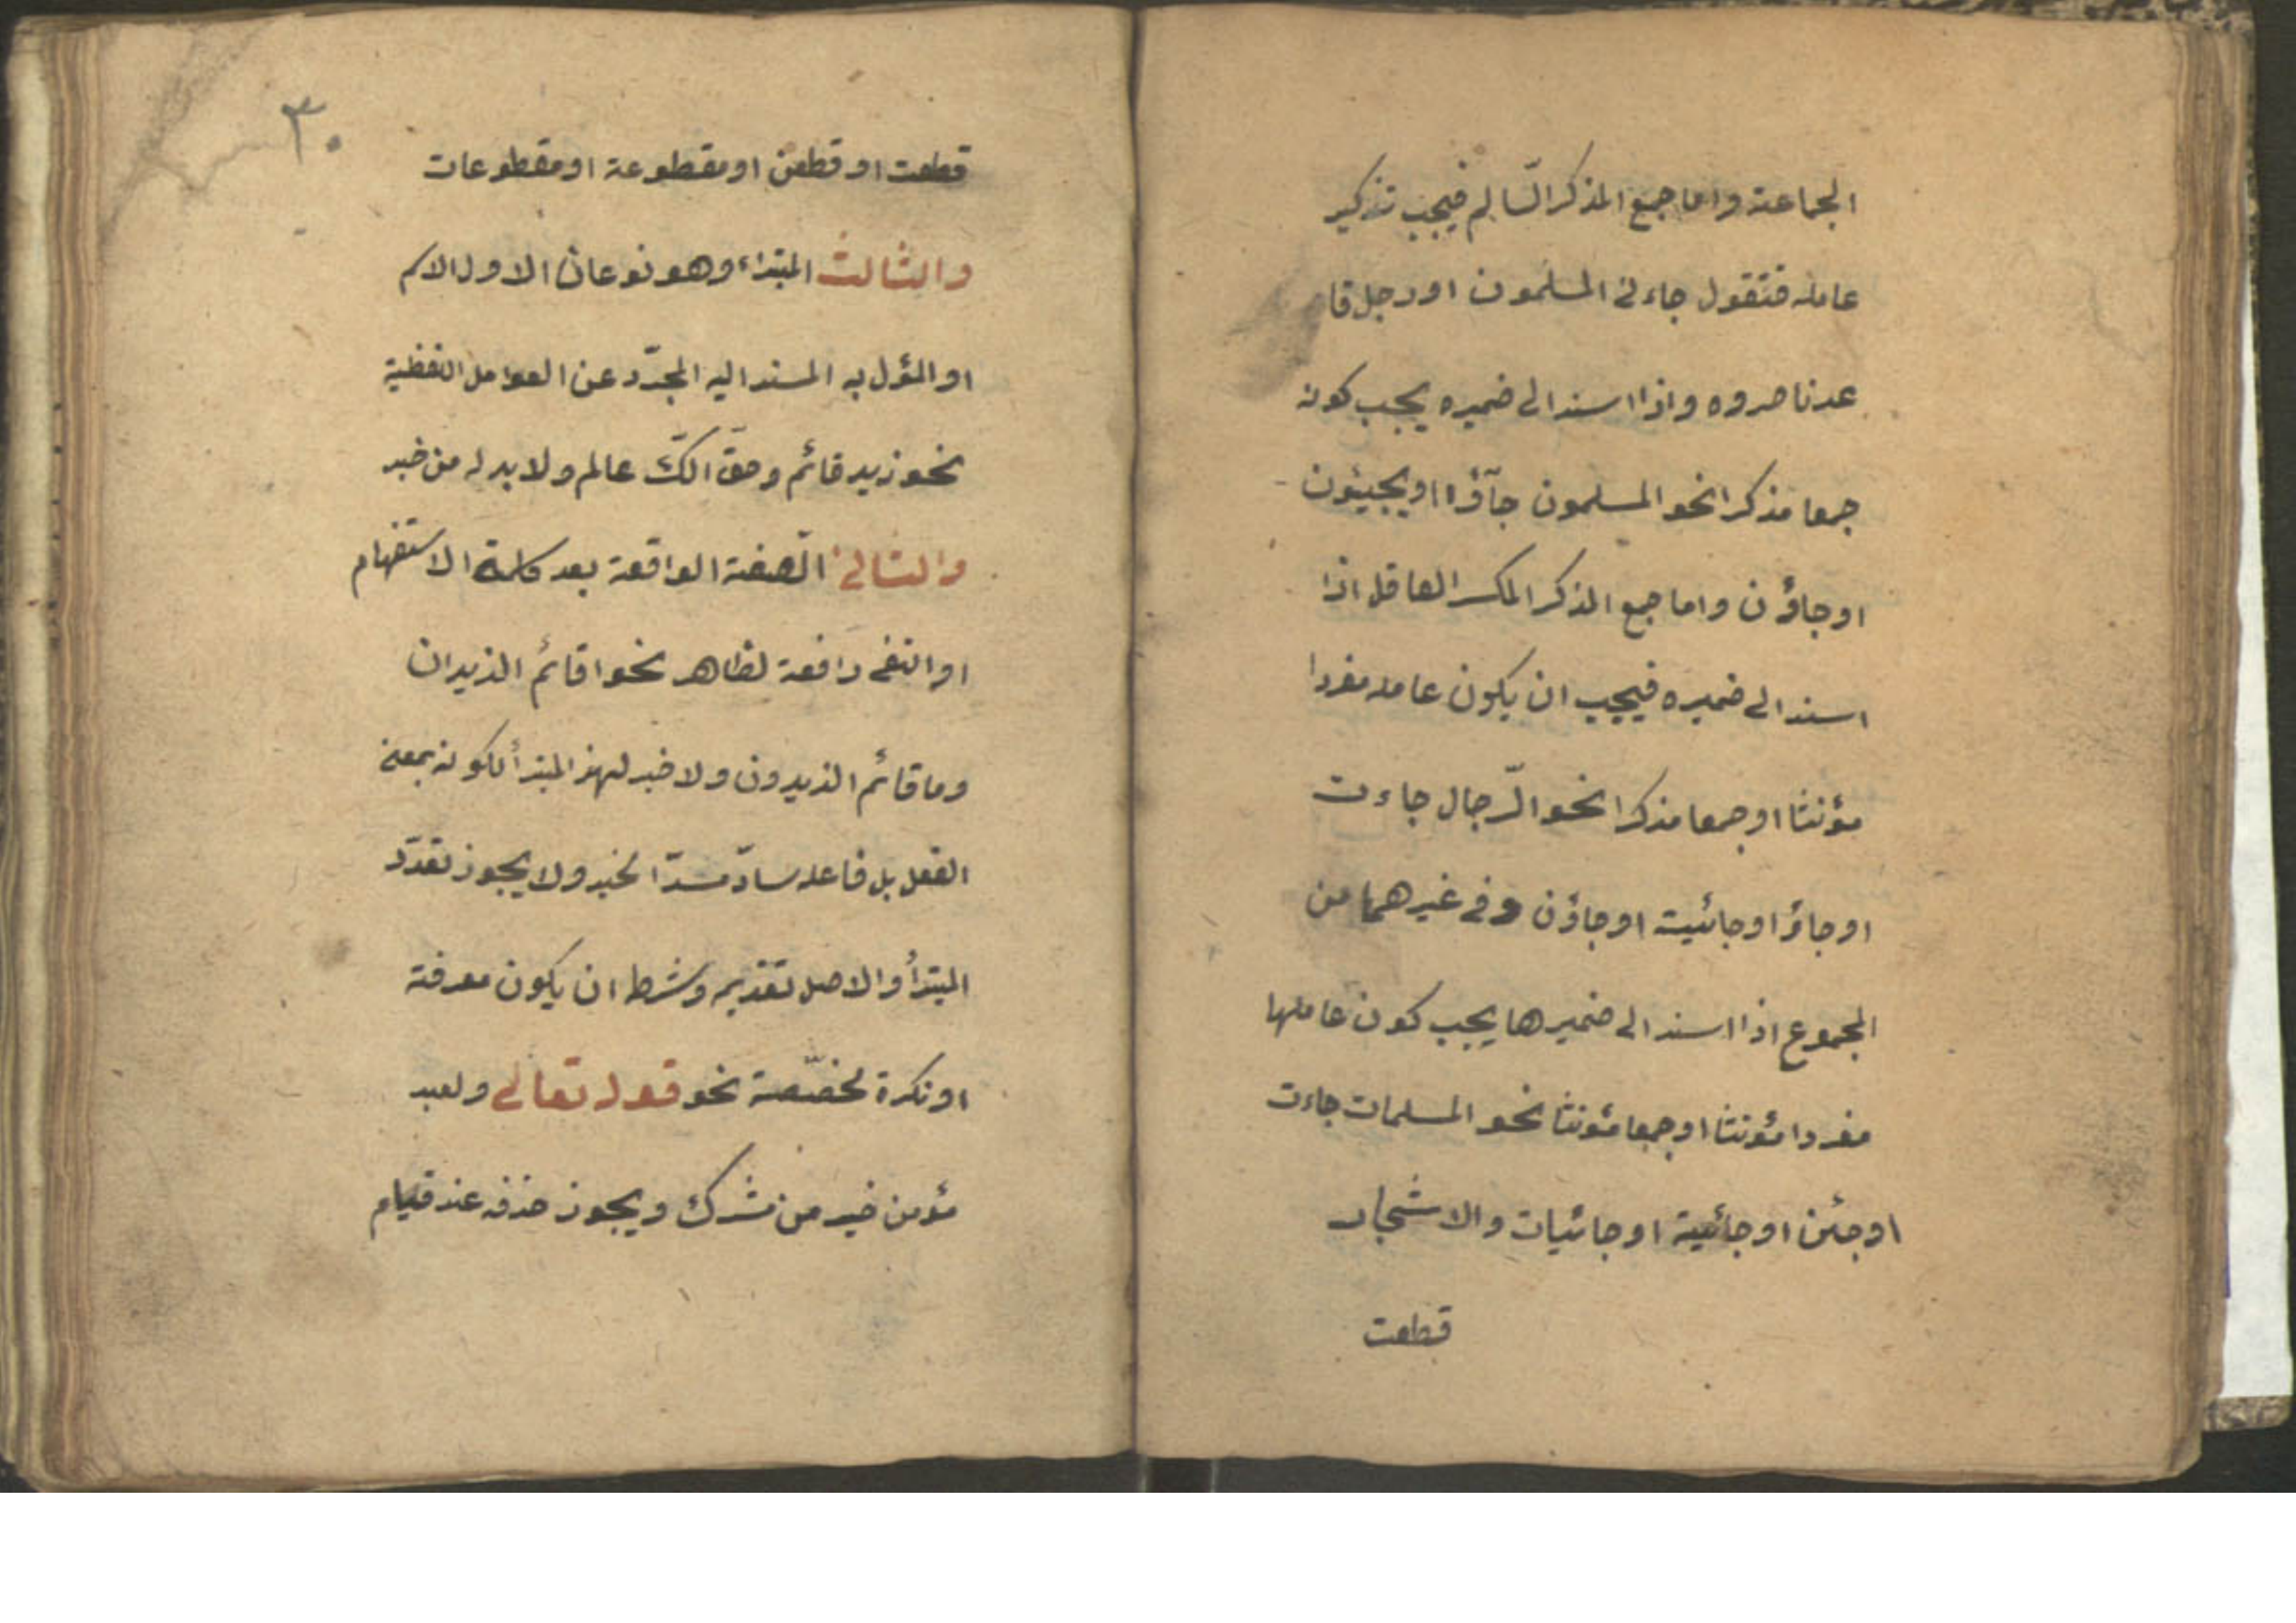 الجماعة واما جمع المذكر السّالم فيجب تذكير
عامله فتقول جاءنى المسلمون او رجل قا
عد ناصروه واذا اسند الى ضميره يجب كونه
جمعا مذكرا نحو المسلمون جآؤا او يجيئون
او جاؤن واما جمع المذكر المكسر العاقل اذا
اسند الى ضميره فيجب ان يكون عامله مفردا
مؤنثا او جمعا مذكرا نحو الرّجال جاءت
او جاؤ او جائية او جاؤن وفى غيرهما من
المجموع اذا اسند الى ضميرها يجب كون عاملها
مفردا مؤنثا او جمعا مؤنثا نحو المسلمات جاءت
او جئن او جائية او جائيات والاشجار
قطعت
٣٠
قطعت او قطعن او مقطوعة او مقطوعات
والثالث المبتداء وهو نوعان الاول الاسم
او المؤل به المسند اليه المجرّد عن العوامل اللفظية
نحو زيد قائم وحقّ انّك عالم ولا بد له من خبر
والثانى الصّفة الواقعة بعد كلمة الاستفهام
او النفى رافعة لظاهر نحو اقائم الزيدان
وما قائم الزيدون ولا خبر لهذ المبتدأ لكونه بمعنى
الفعل بل فاعله سادّ مسدّ الخبر ولا يجوز تعدّد
المبتدأ والاصل تقديمه وشرطه ان يكون معرفة
او نكرة مخصّصة نحو قوله تعالى ولعبد
مؤمن خير من مشرك ويجوز حذفه عند قيام